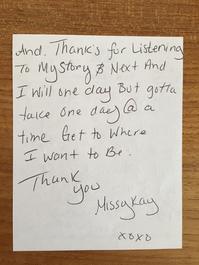 And. Thank's for Listening
To My Story & Next And
I Will one day But gotta
take one day @ a
time Get to Where
I want to Be.
Thank
you
Missy Kay
xoxo